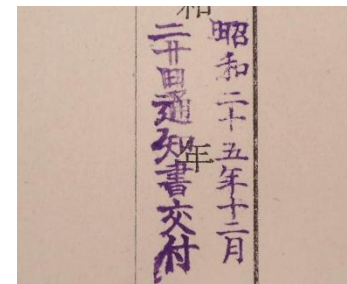 昭和二十五年十二月
二十日通知書交付
和
年